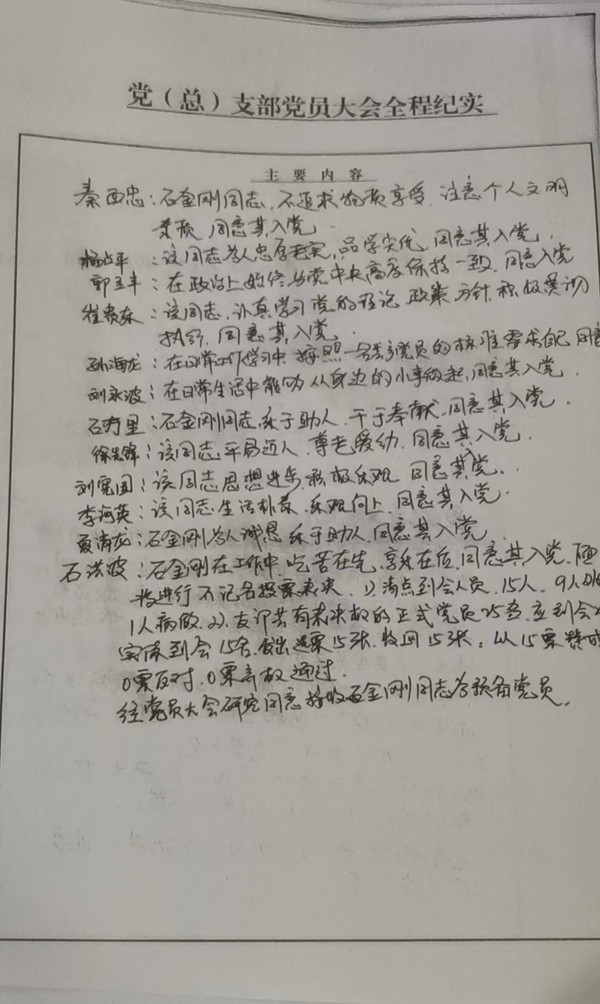 党（总）支部党员大会全程纪实
主要内容
秦西忠：石金刚同志，不追求物质享受，注意个人文明
素质，同意其入党
平：该同志为人忠厚老实，品学兼优，同意其入党，
郭玉丰：在政治上始终与党中央高度保持一致，同意入党
崔贵东：该同志，认真学习党的理论 政策 方针，积极贯彻
执行，同意其入党。
孙海龙：在日常工作学习中 按照一名党员的标准要求自己 同意
刘永波：在日常生活中能够从身边的小事做起，同意其入党，
石有里：石金刚同志，乐于助人，干于奉献，同意其入党，
徐 锋：该同志平易近人，尊老爱幼，同意其入党，
刘宪国：该同志思想进步，积极乐观，同意其党，
李海英：该同志生活朴素，乐观向上，同意其入党，
夏清龙：石金刚为人诚恳，乐于助人，同意其入党。
石洪波：石金刚在工作中，吃苦在先，享乐在后，同意其入党，
将进行不记名投票表决，1）清点到会人员，15人，9人
1人病假，2）支部共有表决权的正式党员25名，应到会
实际到会15名，发出选票15张，收回15张，以15票赞成
0票反对，0票弃权 通过，
经党员大会研究同意接收石金刚同志为预备党员，